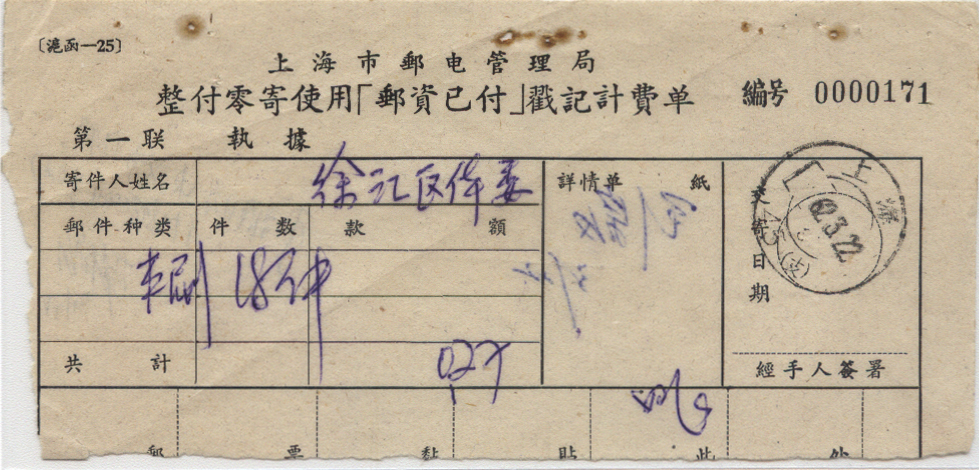 〔滬函—25〕
上海市郵电管理局
整付零寄使用「郵資已付」戳記計費单 編号 0000171
第一联 執據
寄件人姓名 徐汇区体委 詳情单 紙
郵件种类 件数 款額
印刷 18件
共計
交寄日期
上海
62.3.22
15
經手人簽署
郵票黏貼此处